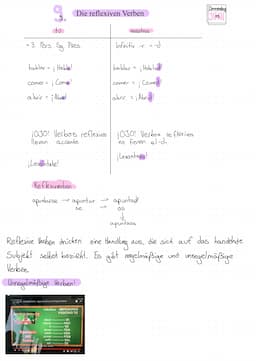 9.
Die reflexiven Verben
tú
vosotros
→ 3. Pers Sg Pres
Infinitiv -r → d
hablar → ¡Habla!
hablar → ¡Hablad!
comer → ¡Come!
comer → ¡Comed!
abrir → ¡Abre!
abrir → ¡Abrid!
¡OJO! Verbos reflexivos
llevan acento
¡OJO! Verbos reflexivos
no llevan el -d.
¡Levántate!
¡Levantaos!
Reflexivverben
apuntarse → apuntar → apuntad
se → os
apuntaos
Reflexive Verben drücken eine Handlung aus, die sich auf das handelnde
Subjekt selbst bezieht. Es gibt regelmäßige und unregelmäßige
Verben.
Unregelmäßige Verben!